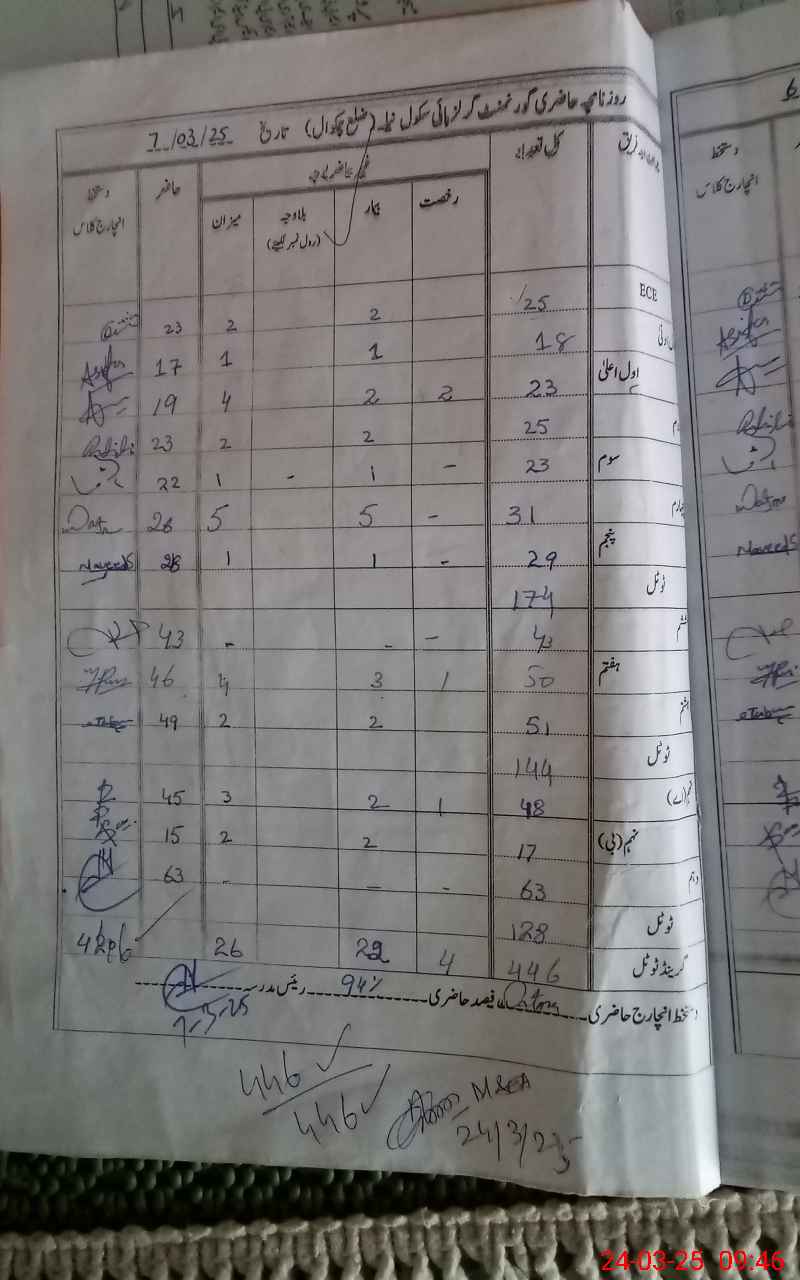 روزنامچہ حاضری گورنمنٹ گرلز ہائی سکول نیلہ (ضلع چکوال) تاریخ 7/03/25
کل تعداد غیر حاضر بوجہ حاضر دستخط انچارج کلاس
رخصت بیمار بلاوجہ (رول نمبر لکھیے) میزان
ECE 25 2 2 23
18 1 1 17 Asifa
اول اعلیٰ 23 2 2 4 19
25 2 2 23
سوم 23 - 1 - 1 22
31 - 5 5 26
پنجم 29 - 1 1 28 Naveed
ٹوٹل 174
ششم 43 - - - 43
ہفتم 50 1 3 4 46
ہشتم 51 2 2 49
ٹوٹل 144
نہم (اے) 48 1 2 3 45
نہم (بی) 17 2 2 15
دہم 63 - - - 63
ٹوٹل 128
گرینڈ ٹوٹل 446 4 22 26
دستخط انچارج حاضری فیصد حاضری 94% رئیس مدرسہ
7-3-25
446
446
M&EA
24/3/25
دستخط انچارج کلاس
Naveed
24-03-25 09:46